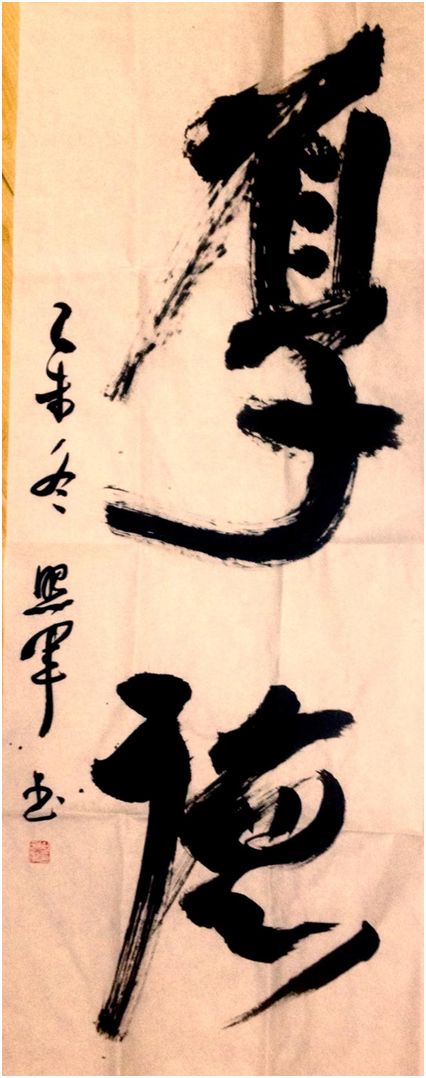 厚德
乙未冬 照军书